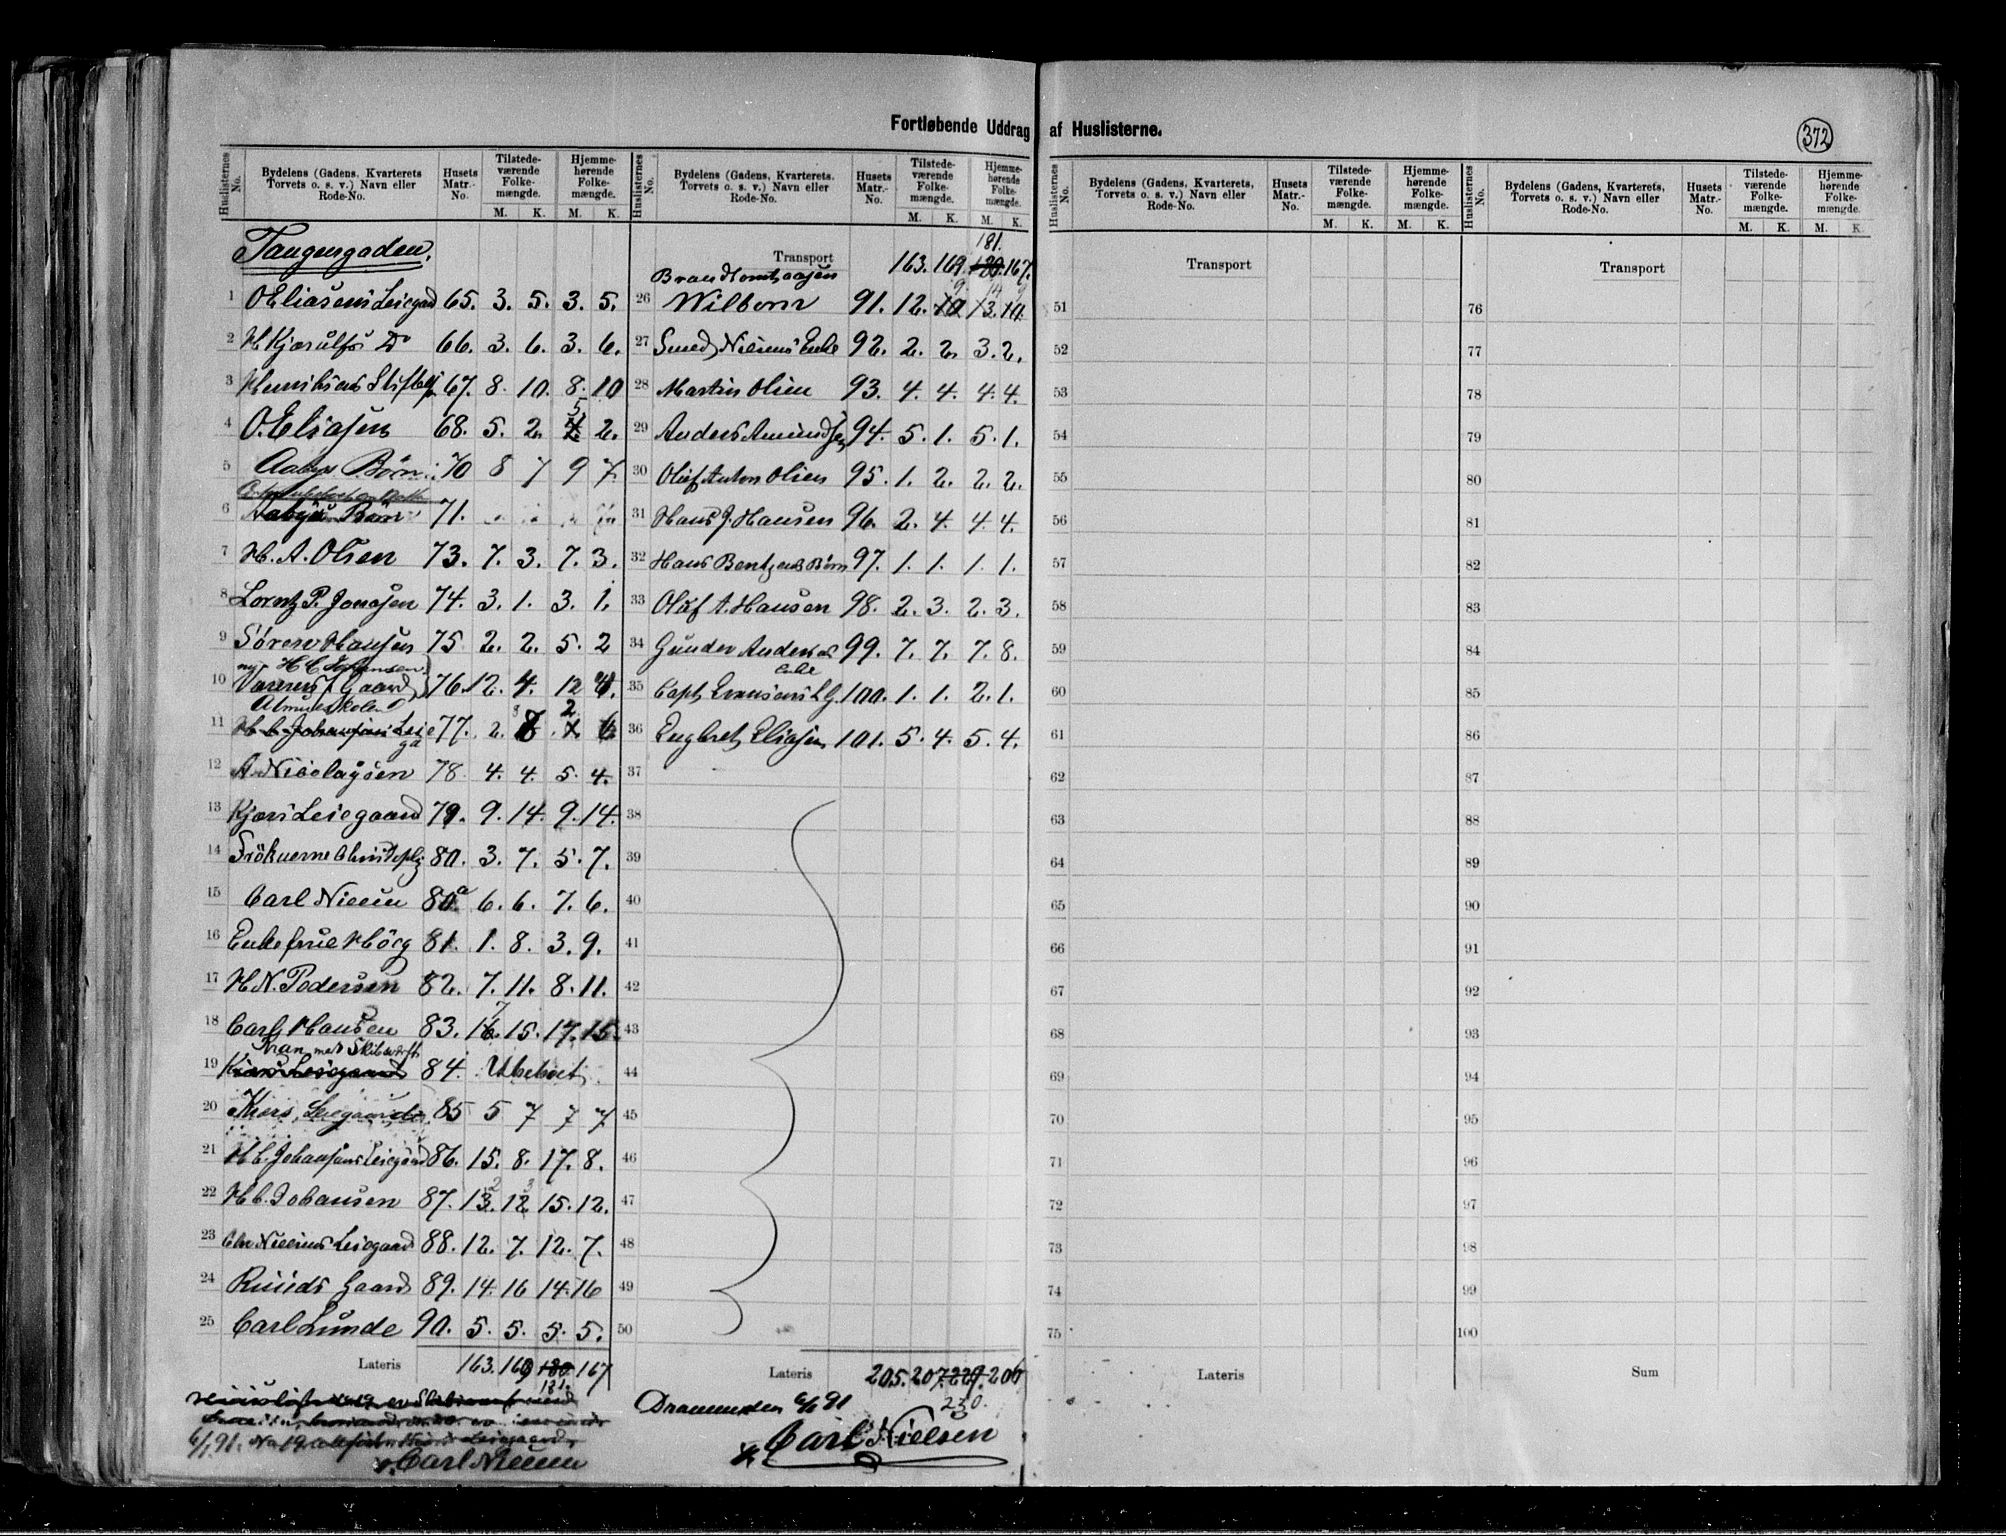 Fortløbende Uddrag af Huslisterne.
372
Huslisternes No. Bydelens (Gadens, Kvarterets Torvets o. s. v.) Navn eller Rode-No. Husets Matr.-No. Tilstedeværende Folkemængde. M. K. Hjemmehørende Folkemængde. M. K.
Tangengaden.
1 O Eliasens Leiegaard 65. 3. 5. 3. 5.
2 H Kjærulfs Do 66. 3. 6. 3. 6.
3 Henriksens 67. 8. 10. 8. 10
4 O. Eliasen 68. 5. 2. 5 2.
5 Aabys Børn 70 8 7 9 7.
6 Aabys Børn 71.
7 H. A. Olsen 73. 7. 3. 7. 3.
8 Lorentz P. Jonasen 74. 3. 1. 3. 1.
9 Søren Hansen 75 2. 2. 5. 2
10 Gaard 76. 12. 4. 12 4.
Almueskolen
11 H. C. Johansens Leiega 77. 2. 8 2 6
12 A. Nicolaysen 78. 4. 4. 5. 4.
13 Kjærs Leiegaard 79. 9. 14. 9. 14.
14 Frøknerne 80. 3. 7. 5. 7.
15 Carl Nielsen 80a 6. 6. 7. 6.
16 Enkefrue Høeg 81. 1. 8. 3. 9.
17 H. N. Pedersen 82. 7. 11. 8. 11.
18 Carl Hansen 83. 16. 7 15. 17. 15.
Kran med Skibsverft
19 Kiærs Leiegaard 84. Ubeboet
20 Kiærs Leiegaard 85 5 7 7 7
21 H C. Johansens Leiegaard 86. 15. 8. 17. 8.
22 H C. Johansen 87. 13. 2 12 3 15. 12.
23 Chr Nielsens Leiegaard 88. 12. 7. 12. 7.
24 Ruuds Gaard 89. 14. 16 14. 16
25 Carl Lunde 90. 5. 5. 5. 5.
Lateris 163. 169 180 167
181.
6/1 91.
Carl Nielsen
Huslisternes No. Bydelens (Gadens, Kvarterets, Torvets o. s. v.) Navn eller Rode-No. Husets Matr.-No. Tilstedeværende Folkemængde. M. K. Hjemmehørende Folkemængde. M. K.
181.
Transport 163. 169. 180. 167.
26 Wilborn 91. 12. 10 9. 13. 14 10. 9
27 Smed Nielsens Enke 92. 2. 2. 3. 2.
28 Martin Olsen 93. 4. 4. 4. 4.
29 Anders Amundsen 94. 5. 1. 5. 1.
30 Oluf Anton Olsen 95. 1. 2. 2. 2.
31 Hans J. Hansen 96. 2. 4. 4. 4.
32 Hans Bentzens Børn 97. 1. 1. 1. 1.
33 Oluf A. Hansen 98. 2. 3. 2. 3.
34 Gunder Anders 99. 7. 7. 7. 8.
Enke
35 Capt Evensens L G. 100. 1. 1. 2. 1.
36 Engbret Eliasen 101. 5. 4. 5. 4.
37
38
39
40
41
42
43
44
45
46
47
48
49
50
Lateris 205. 207. 229. 206
230.
Drammen den 6/1 91
Carl Nielsen
Huslisternes No. Bydelens (Gadens, Kvarterets, Torvets o. s. v.) Navn eller Rode-No. Husets Matr.-No. Tilstedeværende Folkemængde. M. K. Hjemmehørende Folkemængde. M. K.
Transport
51
52
53
54
55
56
57
58
59
60
61
62
63
64
65
66
67
68
69
70
71
72
73
74
75
Lateris
Huslisternes No. Bydelens (Gadens, Kvarterets, Torvets o. s. v.) Navn eller Rode-No. Husets Matr.-No. Tilstedeværende Folkemængde. M. K. Hjemmehørende Folkemængde. M. K.
Transport
76
77
78
79
80
81
82
83
84
85
86
87
88
89
90
91
92
93
94
95
96
97
98
99
100
Sum